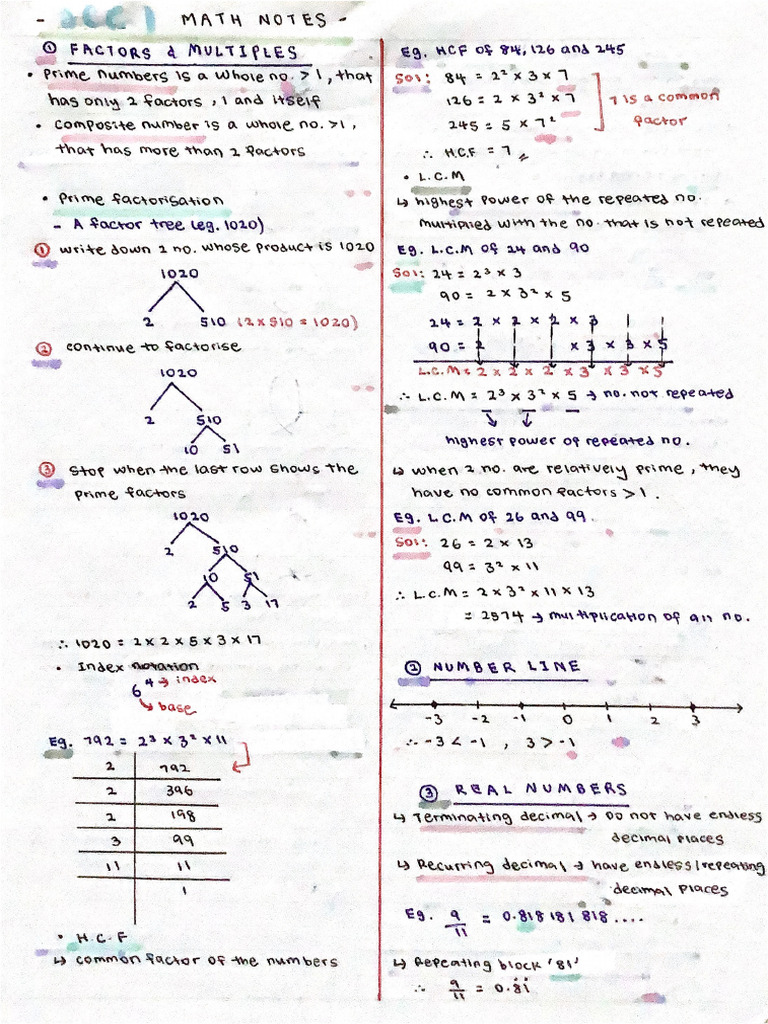 - SEC 1 MATH NOTES -
① FACTORS & MULTIPLES
• Prime numbers is a whole no. > 1, that
has only 2 factors, 1 and itself
• composite number is a whole no. >1,
that has more than 2 factors
• Prime factorisation
- A factor tree (eg. 1020)
① write down 2 no. whose product is 1020
1020
2 510 (2 x 510 = 1020)
② continue to factorise
1020
2 510
10 51
③ stop when the last row shows the
prime factors
1020
2 510
10 51
2 5 3 17
∴ 1020 = 2 x 2 x 5 x 3 x 17
• Index notation
6⁴ → index
↳ base
Eg. 792 = 2³ x 3² x 11
2 792
2 396
2 198
3 99
11 11
1
• H.C.F
↳ common factor of the numbers
Eg. HCF of 84, 126 and 245
Sol: 84 = 2² x 3 x 7
126 = 2 x 3² x 7
245 = 5 x 7²
7 is a common
factor
∴ H.C.F = 7
• L.C.M
↳ highest power of the repeated no.
multiplied with the no. that is not repeated
Eg. L.C.M of 24 and 90
Sol: 24 = 2³ x 3
90 = 2 x 3² x 5
24 = 2 x 2 x 2 x 3
90 = 2 x 3 x 3 x 5
L.C.M = 2 x 2 x 2 x 3 x 3 x 5
∴ L.C.M = 2³ x 3² x 5 → no. not repeated
highest power of repeated no.
↳ when 2 no. are relatively prime, they
have no common factors > 1.
Eg. L.C.M of 26 and 99.
Sol: 26 = 2 x 13
99 = 3² x 11
∴ L.C.M = 2 x 3² x 11 x 13
= 2574 → multiplication of all no.
② NUMBER LINE
-3 -2 -1 0 1 2 3
∴ -3 < -1 , 3 > -1
③ REAL NUMBERS
↳ Terminating decimal → DO not have endless
decimal places
↳ Recurring decimal → have endless/repeating
decimal places
Eg. 9/11 = 0.818 181 818 ....
↳ Repeating block '81'
∴ 9/11 = 0.8̇1̇